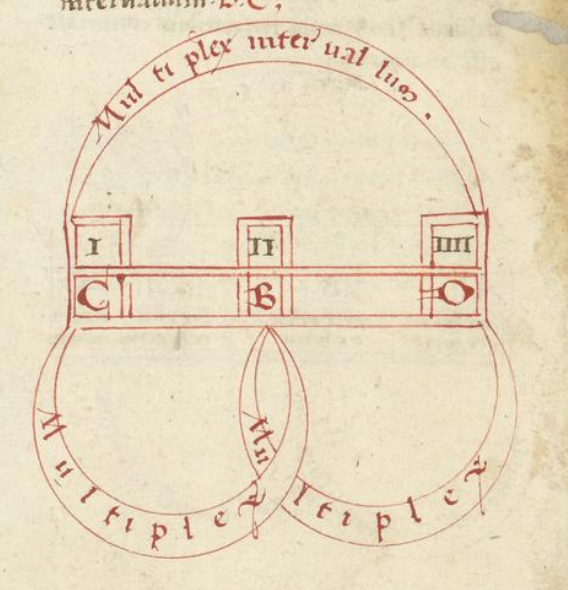 interuallum. B. C.
Mul ti plex inter ual lum.
I II IIII
C B D
Multiplex Multiplex